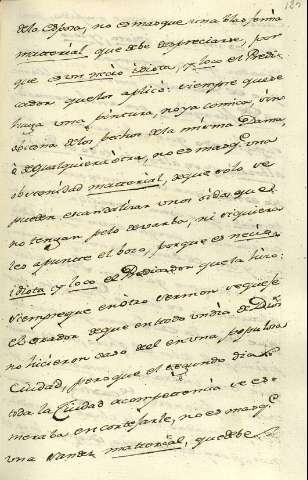 de la Esposa, no es mas que una blasfemia
material, que debe despreciarse, por
que es un necio, idiota, y loco el Predi-
cador que los aplicò: siempre que se
haga una pintura, no ya comica, sin
obscena de los pechos de la misma Dama,
ò de qualquiera otra, no es mas q.e una
obscenidad material, de que solo se
pueden escandalizar unos oidos que
no tengan pelo de barba, ni siquiera
les apunte el bozo, porque es necio,
idiota y loco el Predicador que la hizo:
siempre que en otro sermon se quexe
el orador de que en todo un dia de
no hicieron caso de el en una populosa
Ciudad, pero que el segundo dia
toda la Ciudad a competencia se es-
meraba en cortejarle, no es mas q.e
una material, que debe